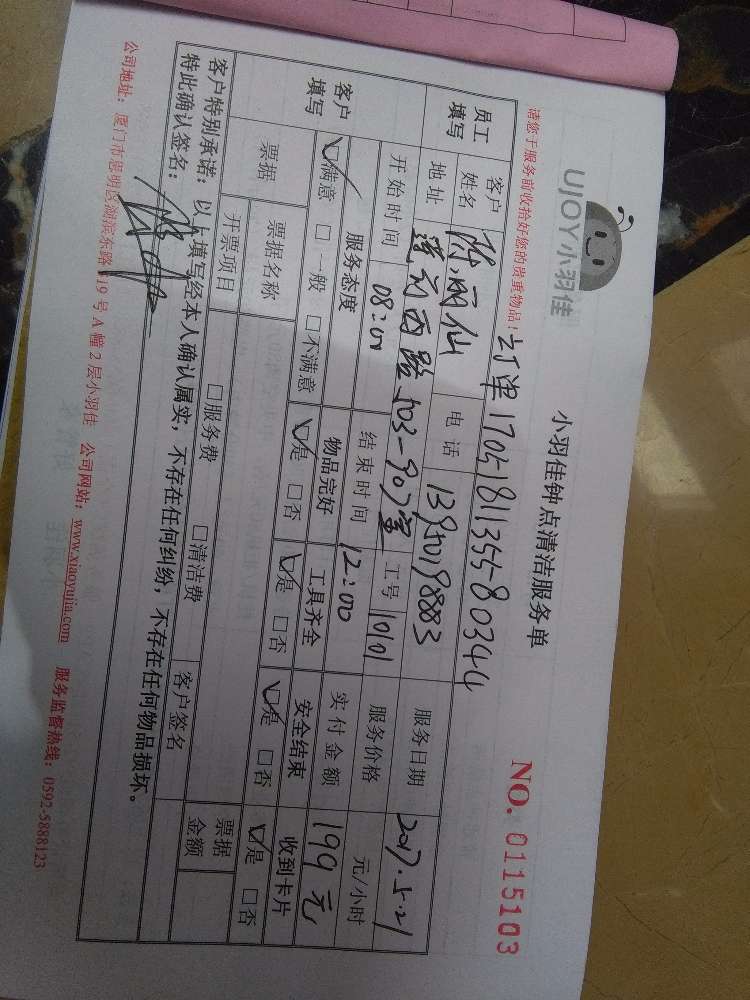 UJOY小羽佳
小羽佳钟点清洁服务单
NO. 0115103
请您于服务前收拾好您的贵重物品！订单17051811355580344
员工填写 客户姓名 陈丽仙 电话 13950198883 服务日期 2017.5.21
地址 莲前西路 503-907室 工号 10101 服务价格 元/小时
开始时间 08:00 结束时间 12:00 实付金额 199元
客户填写 服务态度 物品完好 工具齐全 安全结束 收到卡片
☑满意 □一般 □不满意 ☑是 □否 ☑是 □否 ☑是 □否 ☑是 □否
票据 票据名称 票据金额
开票项目 □服务费 □清洁费 客户签名
客户特别承诺：以上填写经本人确认属实，不存在任何纠纷，不存在任何物品损坏。
特此确认签名：
公司地址：厦门市思明区湖滨东路119号A幢2层小羽佳 公司网站：www.xiaoyujia.com 服务监督热线：0592-5888123